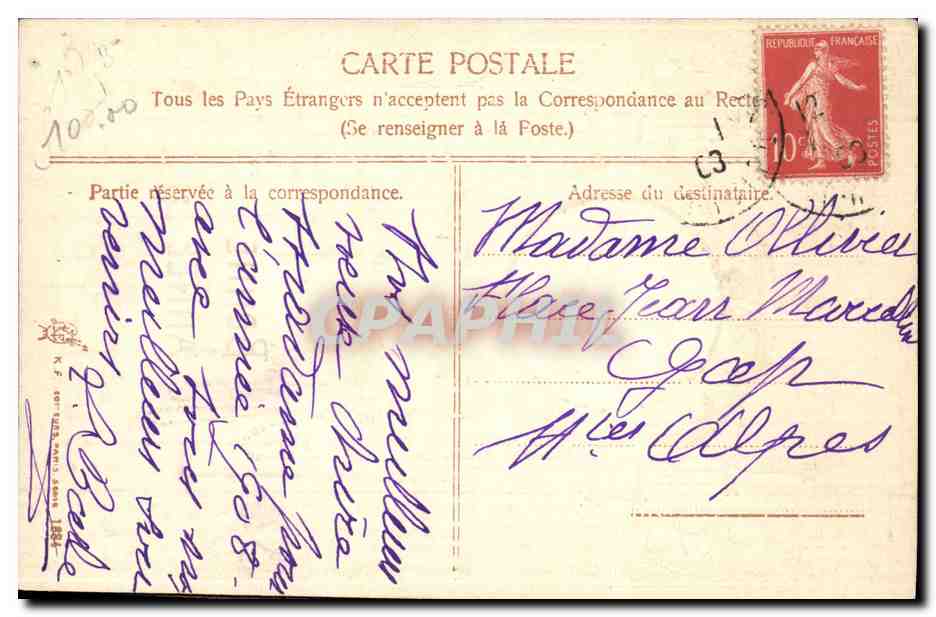 CARTE POSTALE
Tous les Pays Étrangers n'acceptent pas la Correspondance au Recto
(Se renseigner à la Poste.)
RÉPUBLIQUE FRANÇAISE
10c
POSTES
100.00
Partie réservée à la correspondance.
Vos meilleurs
vœux chère
Madame pour
l'année 1908.
avec
meilleurs
Adresse du destinataire.
Madame Ollivier
Place Jean Marcellin
Gap
Htes Alpes
CPAPHIL
K. F. EDITEURS, PARIS SERIE 1884